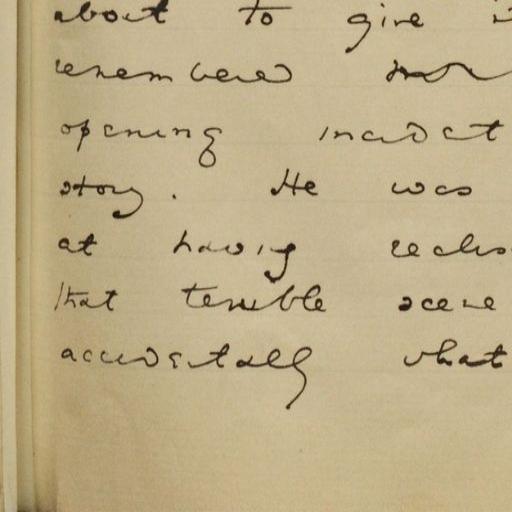 about to give
remembered
opening incident
story. He was
at having
that terrible scene
accidentally what